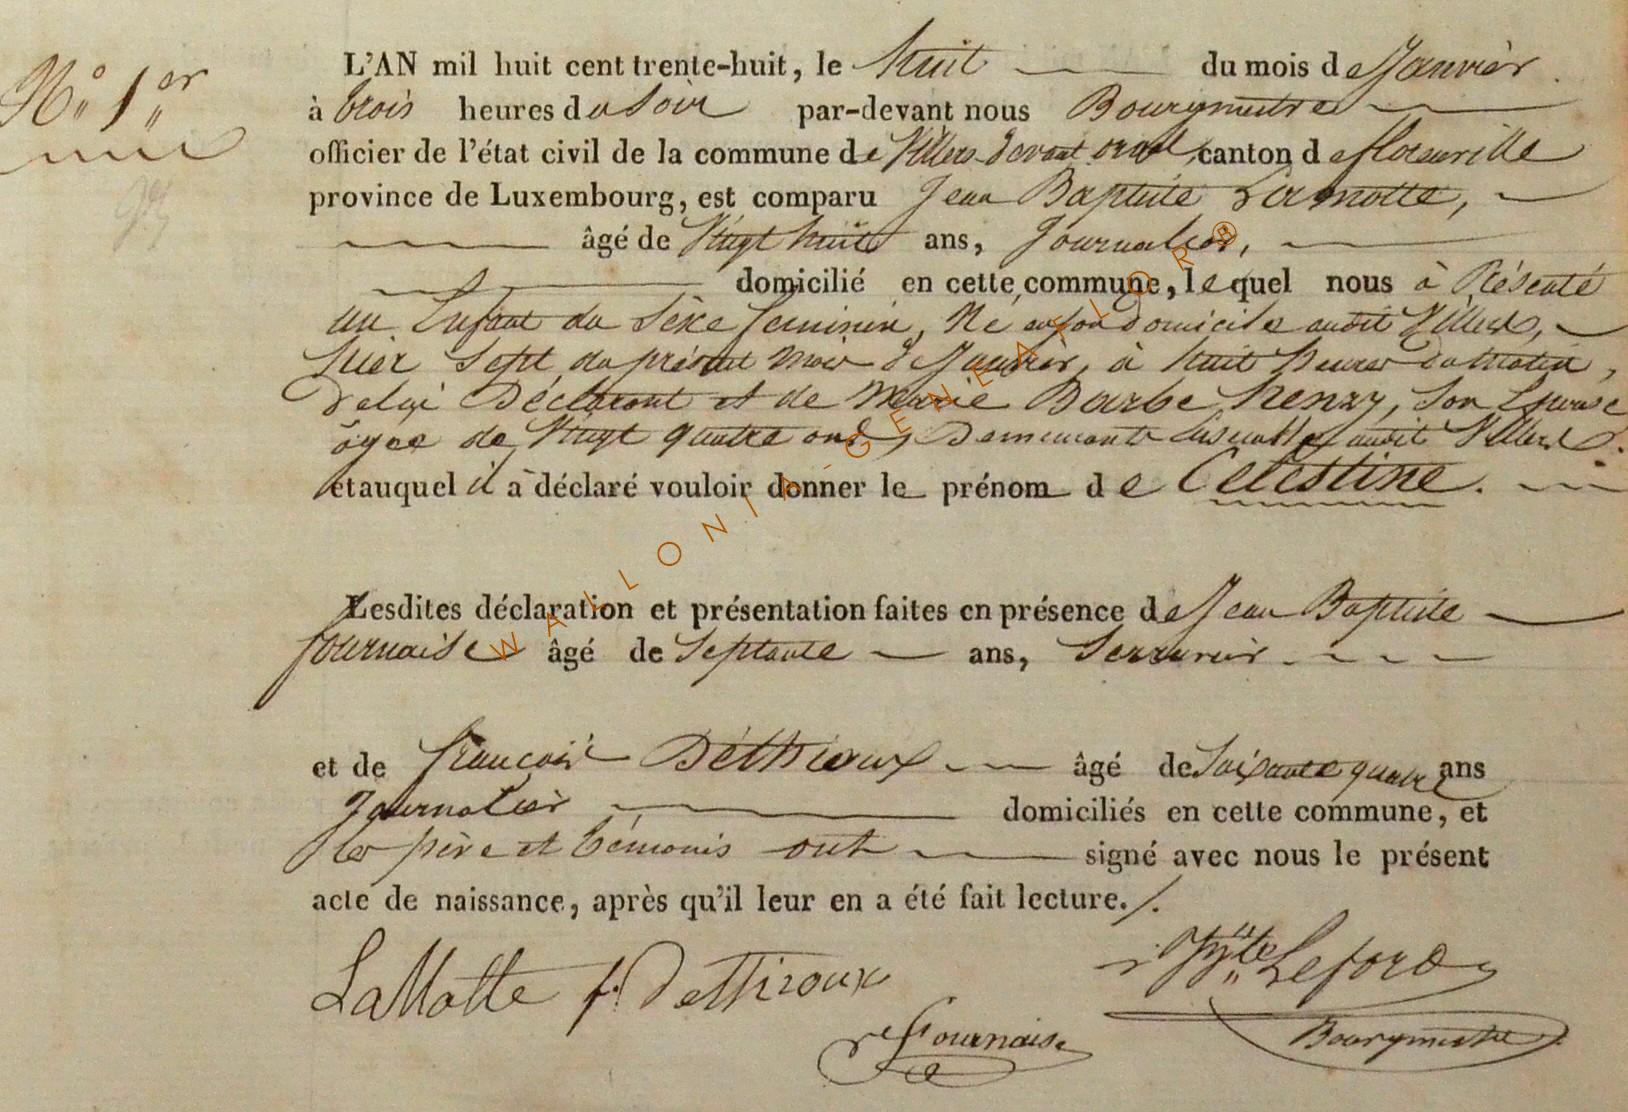 N° 1er
L'AN mil huit cent trente-huit, le huit du mois de Janvièr
à trois heures du Soir par-devant nous Bourgmestre
officier de l'état civil de la commune de Villers devant orval, canton de florenville
province de Luxembourg, est comparu Jean Baptiste Lamotte,
âgé de Vingt huit ans, Journalier,
domicilié en cette commune, lequel nous à Présenté
un Enfant du Sèxe feminin, Né en son domicile audit Villers,
hièr Sept du présent mois de Janvier, à huit heures du matin,
De lui Déclarant et de Marie Barbe henry, Son Epouse
âgée de Vingt quatre ans, Demeurante Ensemble audit Villers.
et auquel il à déclaré vouloir donner le prénom de Celestine.
Lesdites déclaration et présentation faites en présence de Jean Baptiste
fournaise âgé de Septante ans, Serrurièr
et de françois Déthioux âgé de Soixante quatre ans
Journalièr domiciliés en cette commune, et
les père et témoins ont signé avec nous le présent
acte de naissance, après qu'il leur en a été fait lecture./.
LaMotte f. Dethioux Leford
fournaise Bourgmestre
WALLONIA-GENEATIORB®